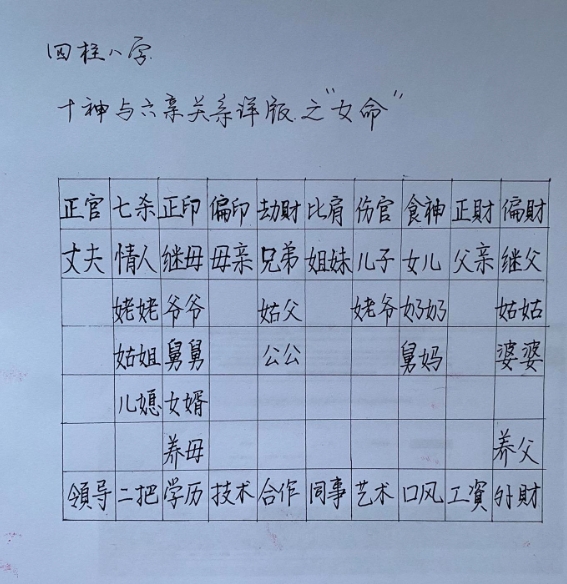 四柱八字
十神与六亲关系详版之"女命"
正官 七杀 正印 偏印 劫财 比肩 伤官 食神 正财 偏财
丈夫 情人 继母 母亲 兄弟 姐妹 儿子 女儿 父亲 继父
姥姥 爷爷 姑父 姥爷 奶奶 姑姑
姑姐 舅舅 公公 舅妈 婆婆
儿媳 女婿
养母 养父
領导 二把 学历 技术 合作 同事 艺术 口风 工資 外財